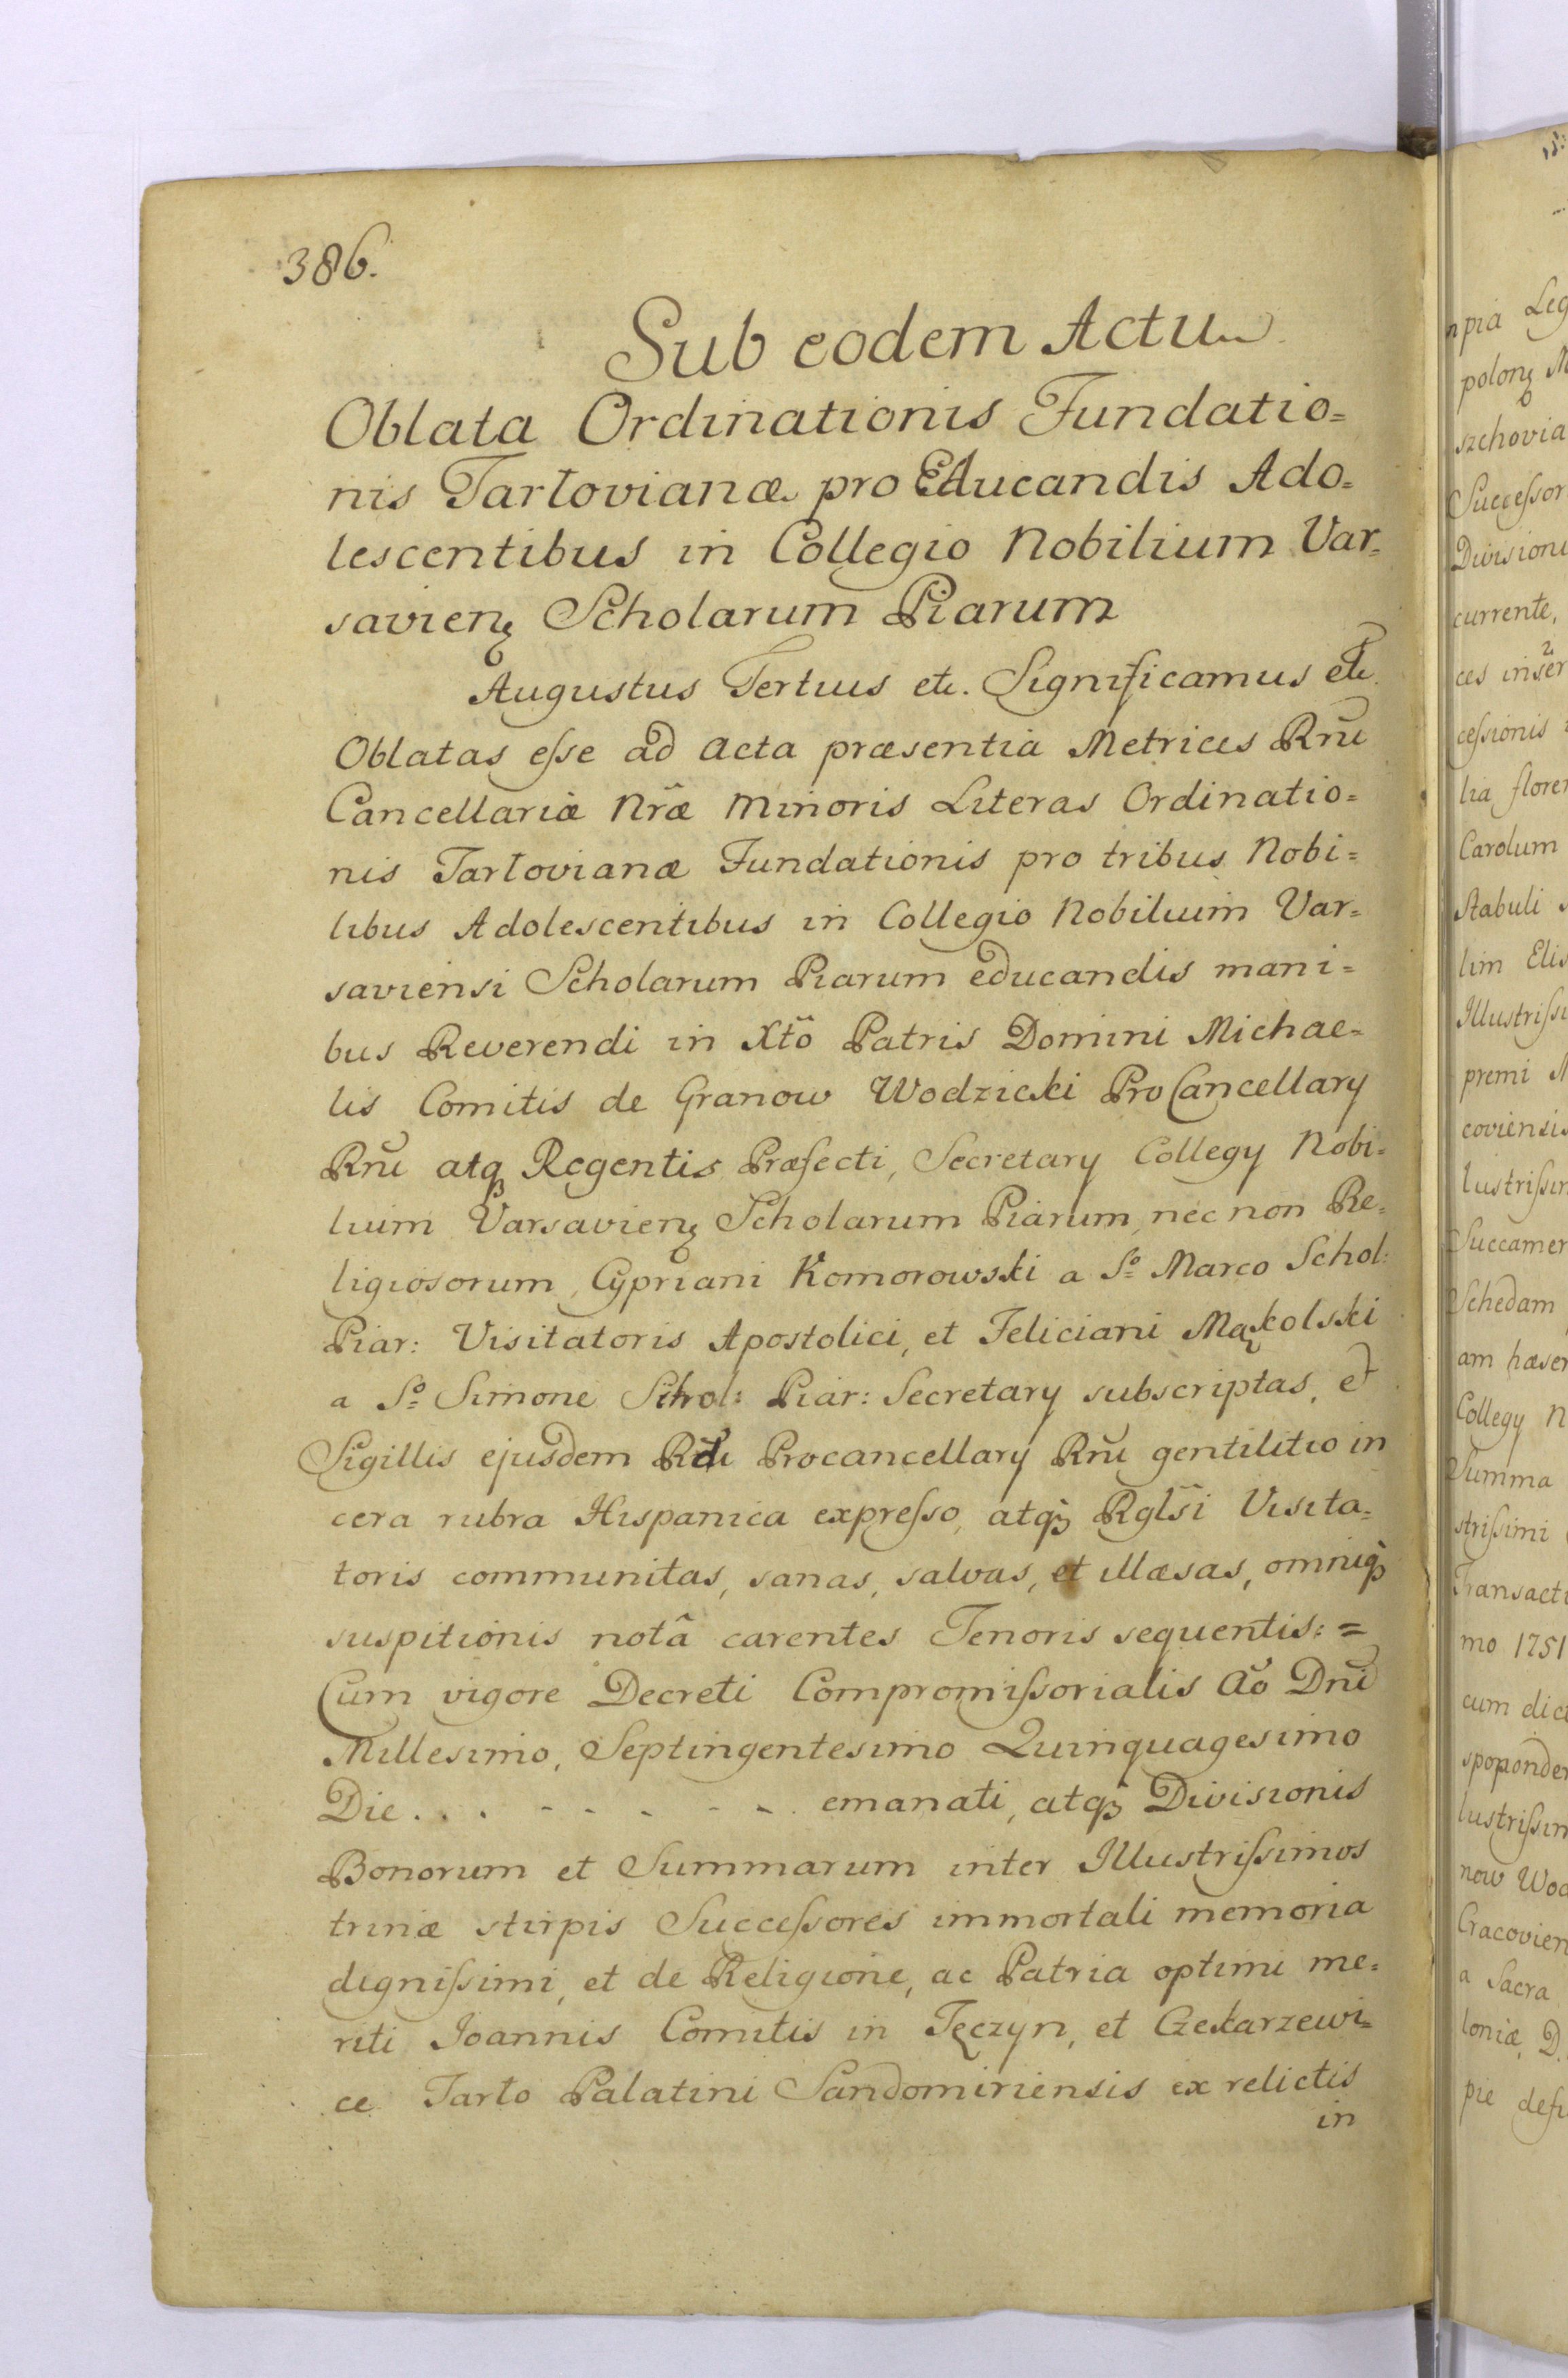 386.
Sub eodem Actu
Oblata Ordinationis Fundatio=
nis Tarłovianæ pro Educandis Ado=
lescentibus in Collegio Nobilium Var=
savienȩ Scholarum Piarum
Augustus Tertius etc. Significamus etc.
Oblatas eſse ad Acta præsentia Metrices Rñi
Cancellariæ Nr̃æ Minoris Literas Ordinatio=
nis Tarłovianæ Fundationis pro tribus Nobi=
libus Adolescentibus in Collegio Nobilium Var=
saviensi Scholarum Piarum educandis mani=
bus Reverendi in Xtõ Patris Domini Michae=
lis Comitis de Granow Wodzicki ProCancellary
Rñi atqꝫ Regentis Præfecti, Secretary Collegy Nobi=
lium Varsavienȩ Scholarum Piarum, nec non Re=
ligiosorum, Cypriani Komorowski a S⁰ Marco Schol:
Piar: Visitatoris Apostolici, et Feliciani Mąkolski
a S⁰ Simone Schol: Piar: Secretary subscriptas, et
Sigillis ejusdem Rdi Procancellary Rñi gentilitio in
cera rubra Hispanica expreſso, atqꝫ Rgls̃i Visita=
toris communitas, sanas, salvas, et illæsas, omniqꝫ
suspitionis notâ carentes Tenoris sequentis: =
Cum vigore Decreti Compromiſsorialis Aõ Dñi
Millesimo, Septingentesimo Quinquagesimo
Die . . . - - - - - . emanati, atqꝫ Divisionis
Bonorum et Summarum inter Illustriſsimos
trinæ stirpis Succeſsores immortali memoria
digniſsimi, et de Religione, ac Patria optimi me=
riti Joannis Comitis in Tęczyn, et Czekarzewi=
ce Tarło Palatini Sandomiriensis ex relictis
in
pia Leg
polonȩ M
szchovia
Succeſsor
Divisioni
currente,
ces inser
ceſsionis
lia floren
Carolum
Stabuli
lim Elis
Illustriſsi
premi M
coviensis
lustriſsim
Succamer
Schedam
am hæser
Collegy N
Summa
striſsimi
Transacti
mo 1751
cum dict
sponder
lustriſsim
now Wod
Cracovien
a Sacra
loniæ, D
pie defu